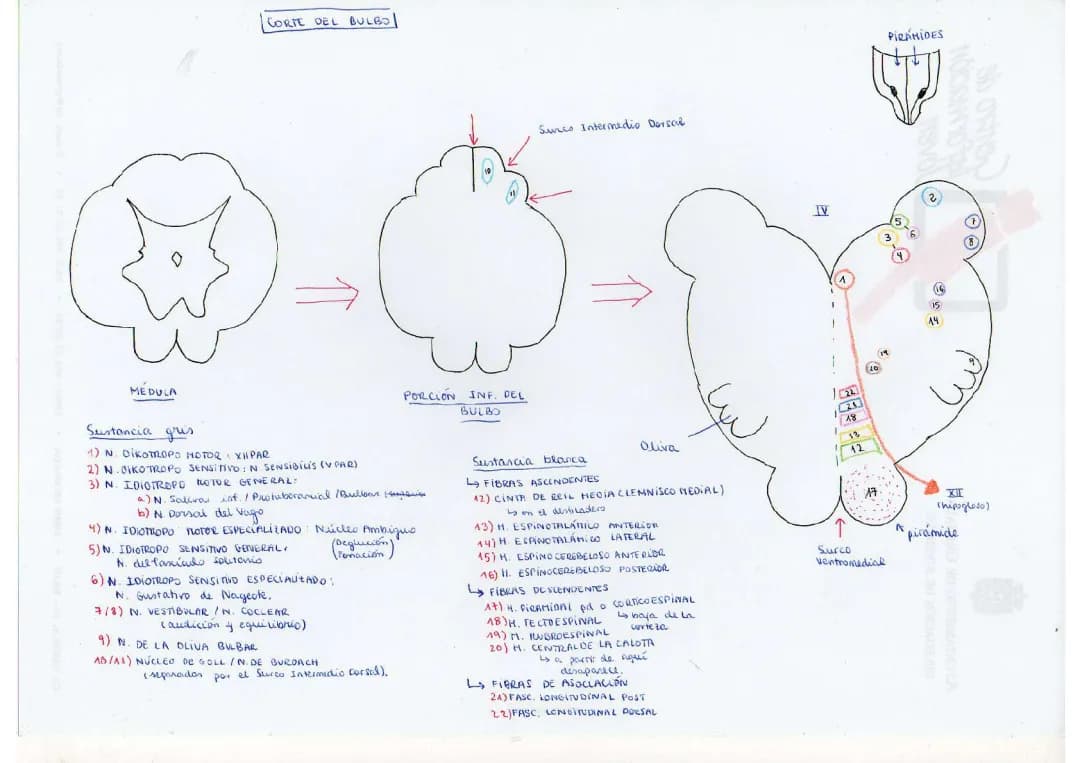 CORTE DEL BULBO
PIRÁMIDES
Surco Intermedio Dorsal
10
11
IV
2
5
6
3
4
7
8
1
16
15
14
19
20
9
22
21
18
13
12
17
MÉDULA
PORCIÓN INF. DEL
BULBO
Oliva
XII
(hipogloso)
pirámide
Surco
ventromedial
Sustancia gris
1) N. OIKOTROPO MOTOR: XII PAR
2) N. OIKOTROPO SENSITIVO: N SENSIBILIS (V PAR)
3) N. IDIOTROPO MOTOR GENERAL:
a) N. Saliva inf. / Protuberancial / Bulbar
b) N. Dorsal del Vago
4) N. IDIOTROPO MOTOR ESPECIALIZADO: Núcleo Ambiguo
(Deglución)
(Fonación)
5) N. IDIOTROPO SENSITIVO GENERAL.
N. del Fascículo solitario
6) N. IDIOTROPO SENSITIVO ESPECIALIZADO:
N. Gustativo de Nageote.
7/8) N. VESTIBULAR / N. COCLEAR
(audición y equilibrio)
9) N. DE LA OLIVA BULBAR
10/11) NÚCLEO DE GOLL / N. DE BURDACH
(separados por el Surco Intermedio Dorsal).
Sustancia blanca
↳ FIBRAS ASCENDENTES
12) CINTA DE REIL MEDIA (LEMNISCO MEDIAL)
↳ en el desfiladero
13) H. ESPINOTALÁMICO ANTERIOR
14) H. ESPINOTALÁMICO LATERAL
15) H. ESPINOCEREBELOSO ANTERIOR
16) H. ESPINOCEREBELOSO POSTERIOR
↳ FIBRAS DESCENDENTES
17) H. PIRAMIDAL pd o CORTICOESPINAL
↳ baja de la
corteza
18) H. TECTOESPINAL
19) H. RUBROESPINAL
20) H. CENTRAL DE LA CALOTA
↳ a partir de aquí
desaparece.
↳ FIBRAS DE ASOCIACIÓN
21) FASC. LONGITUDINAL POST
22) FASC. LONGITUDINAL DORSAL